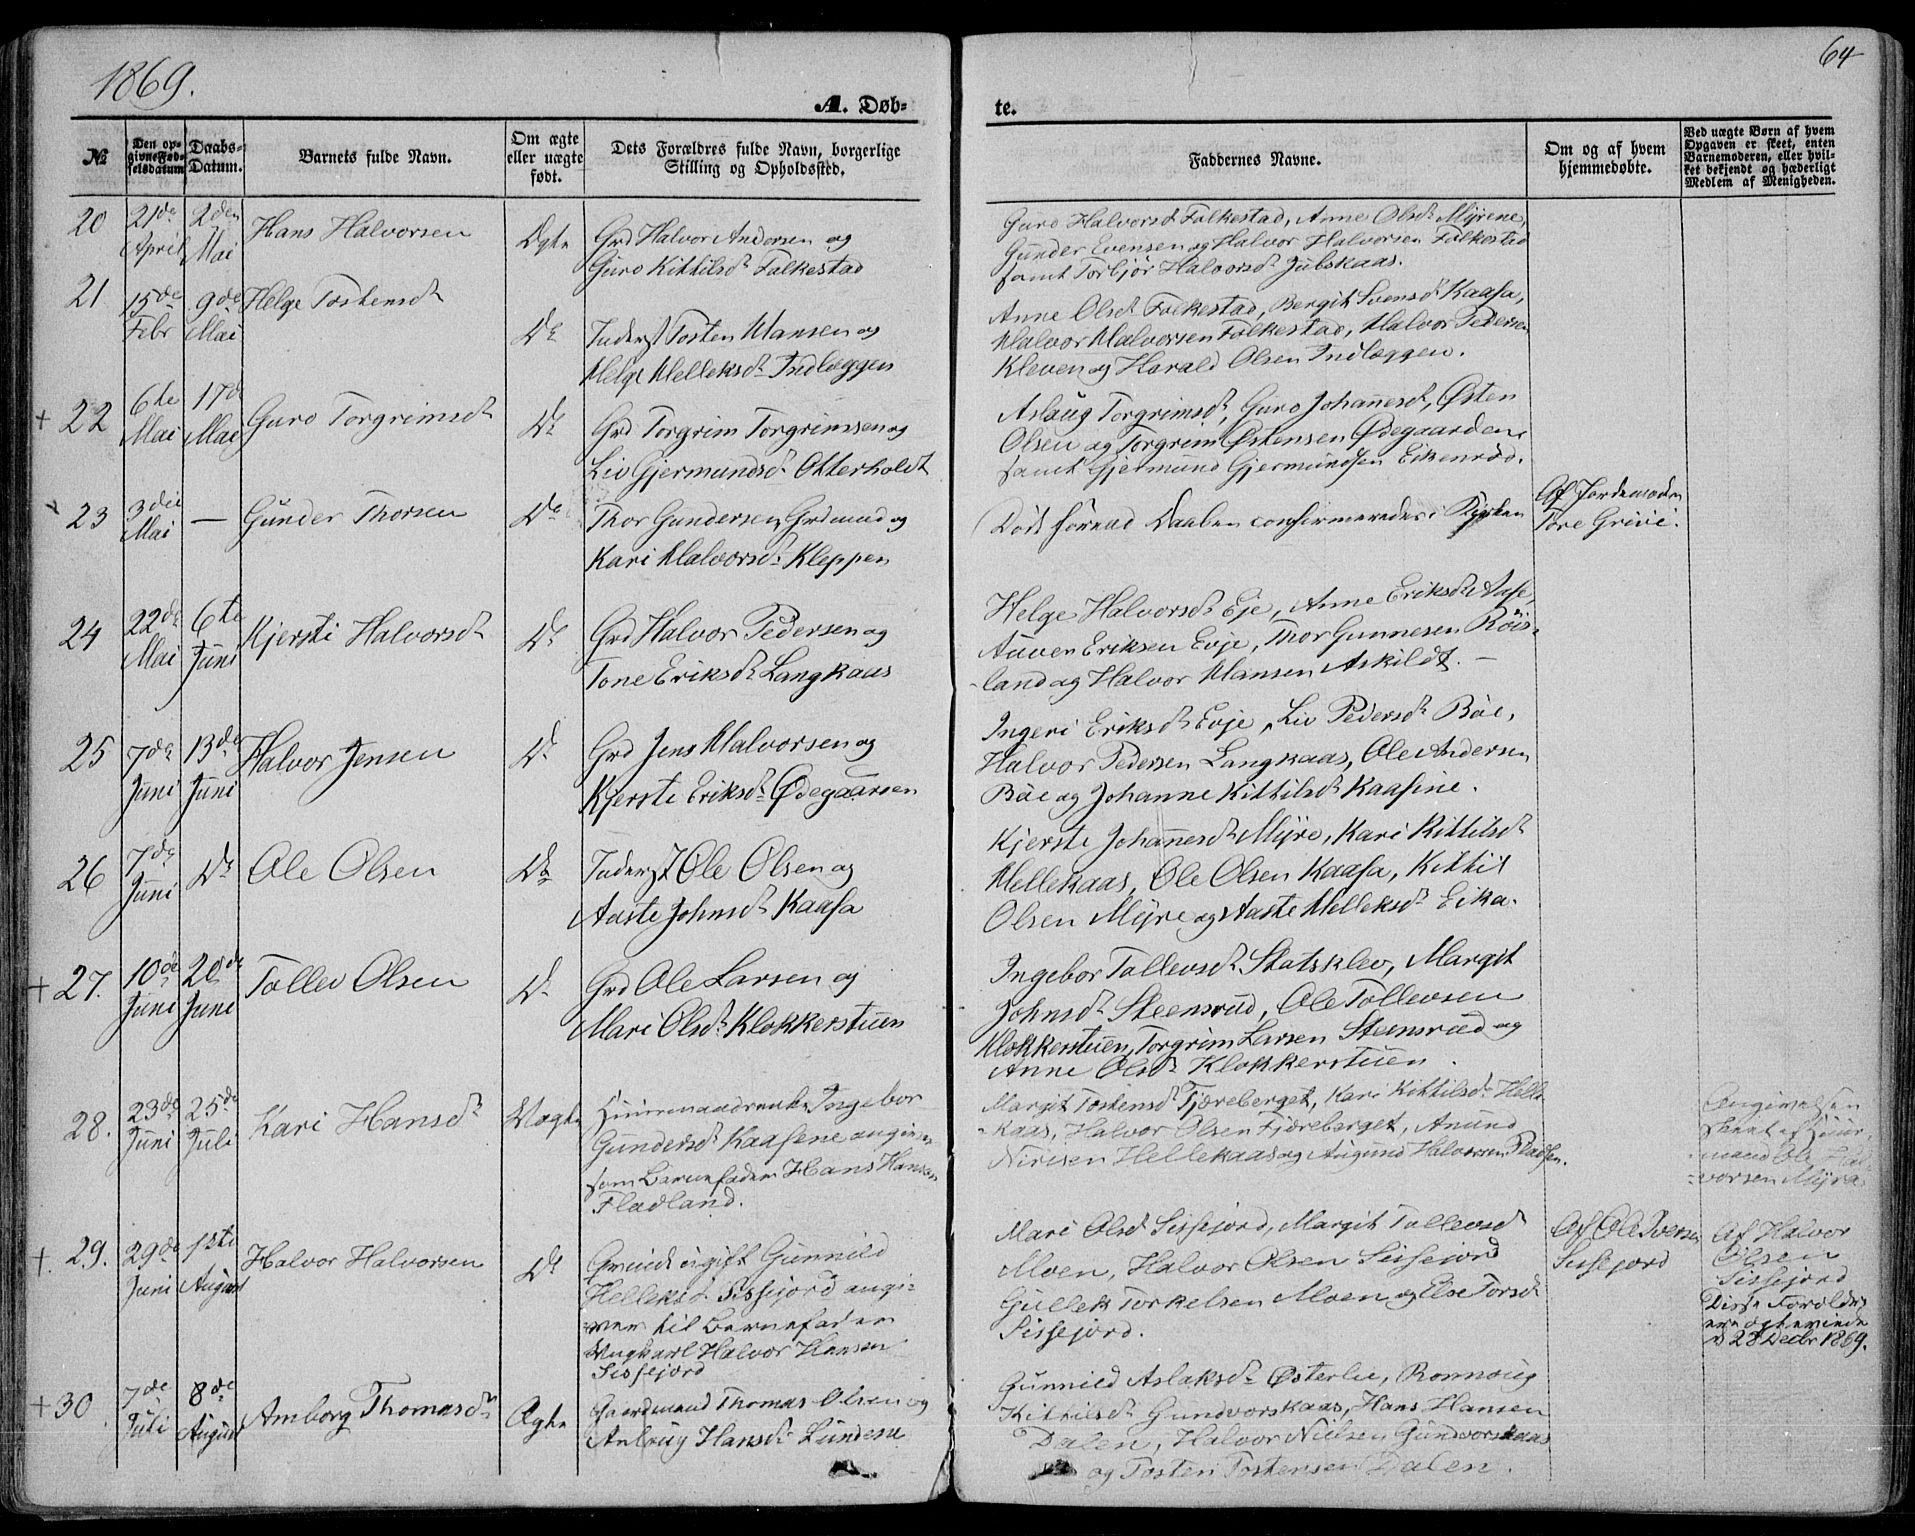 1869.
64
A. Døb-
te.
№
Den op-
givne Fød-
selsdatum
Daabs-
Datum.
Barnets fulde Navn.
Om ægte
eller uægte
født.
Dets Forældres fulde Navn, borgerlige
Stilling og Opholdssted.
Faddernes Navne.
Om og af hvem
hjemmedøbte.
Ved uægte Børn af hvem
Opgaven er skeet, enten
Barnemoderen, eller hvil-
ket bekjendt og hæderligt
Medlem af Menigheden.
20
21de
April
2den
Mai
Hans Halvorsen
Ægte
Grd Halvor Andersen og
Guro Kittilsdr Falkestad
Guro Halvorsd Falkestad, Anne Olsdr Myrene,
Gunder Evensen og Halvor Halvorsen Falkestad
samt Torbjør Halvorsdr Jubskaas.
21
15de
Febr
9de
Mai
Helge Tostensdr
Do
Inderst Tosten Hansen og
Helge Helleksdr Indlæggen
Anne Olsdr Falkestad, Bergit Svensdr Kaasa,
Halvor Halvorsen Falkestad, Halvor Pedersen
Kleven og Harald Olsen Indlæggen.
+ 22
6te
Mai
17de
Mai
Guro Torgrimsdr
Do
Grd Torgrim Torgrimsen og
Liv Gjermundsdr Otterholdt
Aslaug Torgrimsdr, Guro Johannesdr, Østen
Olsen og Torgrim Østensen Ødegaarden,
samt Gjermund Gjermundsen Eikenrød.
23
3die
Mai
—
Gunder Thorsen
Do
Thor Gundersen, Grdmand og
Kari Halvorsdr Kleppen
Død forend Daaben confirmeredes i Kjrken
Af Jordemoder
Tore Grivi.
24
22de
Mai
6te
Juni
Kjersti Halvorsdr
Do
Grd Halvor Pedersen og
Tone Eriksdr Langkaas
Helge Halvorsdr Eje, Anne Eriksdr Aase,
Auven Eriksen Evje, Thor Gunnesen Röis-
land og Halvor Hansen Askildt. —
25
7de
Juni
13de
Juni
Halvor Jensen
Do
Grd Jens Halvorsen og
Kjerste Eriksdr Ødegaarsen
Ingeri Eriksdr Evje, Liv Pedersdr Böe,
Halvor Pedersen Langkaas, Ole Andersen
Böe og Johanne Kittilsdr Kaasine.
26
7de
Juni
Do
Ole Olsen
Do
Inderst Ole Olsen og
Aaste Johnsdr Kaasa
Kjerste Johannesdr Myre, Kari Kittilsdr
Hellekaas, Ole Olsen Kaasa, Kittil
Olsen Myre og Aaste Helleksdr Eika.
+ 27.
10de
Juni
20de
Juni
Tollev Olsen
Do
Grd Ole Larsen og
Mari Olsdr Klokkerstuen
Ingebor Tollevsdr Statsklev, Margit
Johnsdr Steensrud, Ole Tollevsen
Klokkerstuen, Torgrim Larsen Steensrud og
Anne Olsdr Klokkerstuen.
28.
23de
Juni
25de
Juli
Kari Hansdr
Uægte
Ingebor
Gundersdr Kaasene angiver
som Barnefader Hans Hansen
Fladland.
Margit Tostensdr Fjæreberget, Kari Kittilsdr Helle-
kaas, Halvor Olsen Fjæreberget, Anund
Nirisen Hellekaas og Augund Halvorsen Pladsen.
Angivelsen
skeet af Huus-
mand Ole Hal-
vorsen Myra
+. 29.
29de
Juni
1ste
August
Halvor Halvorsen
Do
ugift Gunnild
Helleksd Sissejord angi-
ver til Barnefader
Ungkarl Halvor Hansen
Sissejord
Mari Olsd Sissejord, Margit Tollevsd
Moen, Halvor Olsen Sissejord
Gullek Torkelsen Moen og Else Torsdr
Sissejord.
Af Ole Iversen
Sissejord
Af Halvor
Olsen
Sissejord
Disse Forældre
ere ægteviede
d 28 Decbr 1869.
+ 30
7de
Juli
8de
August
Amborg Thomasdr
Ægte
Gaardmand Thomas Olsen og
Anlaug Hansdr Lundene
Gunnild Aslaksdr Østerlie, Ronnoug
Kittilsdr Gundvorskaas, Hans Hansen
Dalen, Halvor Nielsen Gundvorskaas
og Tosten Tostensen Dalen.